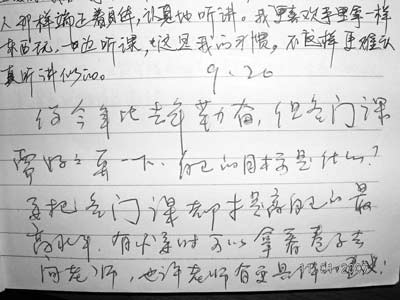 人那样端正着身体,认真地听讲。我更喜欢手里拿一样
东西玩,一边听课,这是我的习惯,不这样更难认
真听讲似的。
9.20
你今年比去年勤奋,但各门课
需好好要一下、自己的目标是什么?
要把各门课都提高自己的最
高水平,有些问题可以拿着卷子去
问老师,也许老师有更具体的建议!